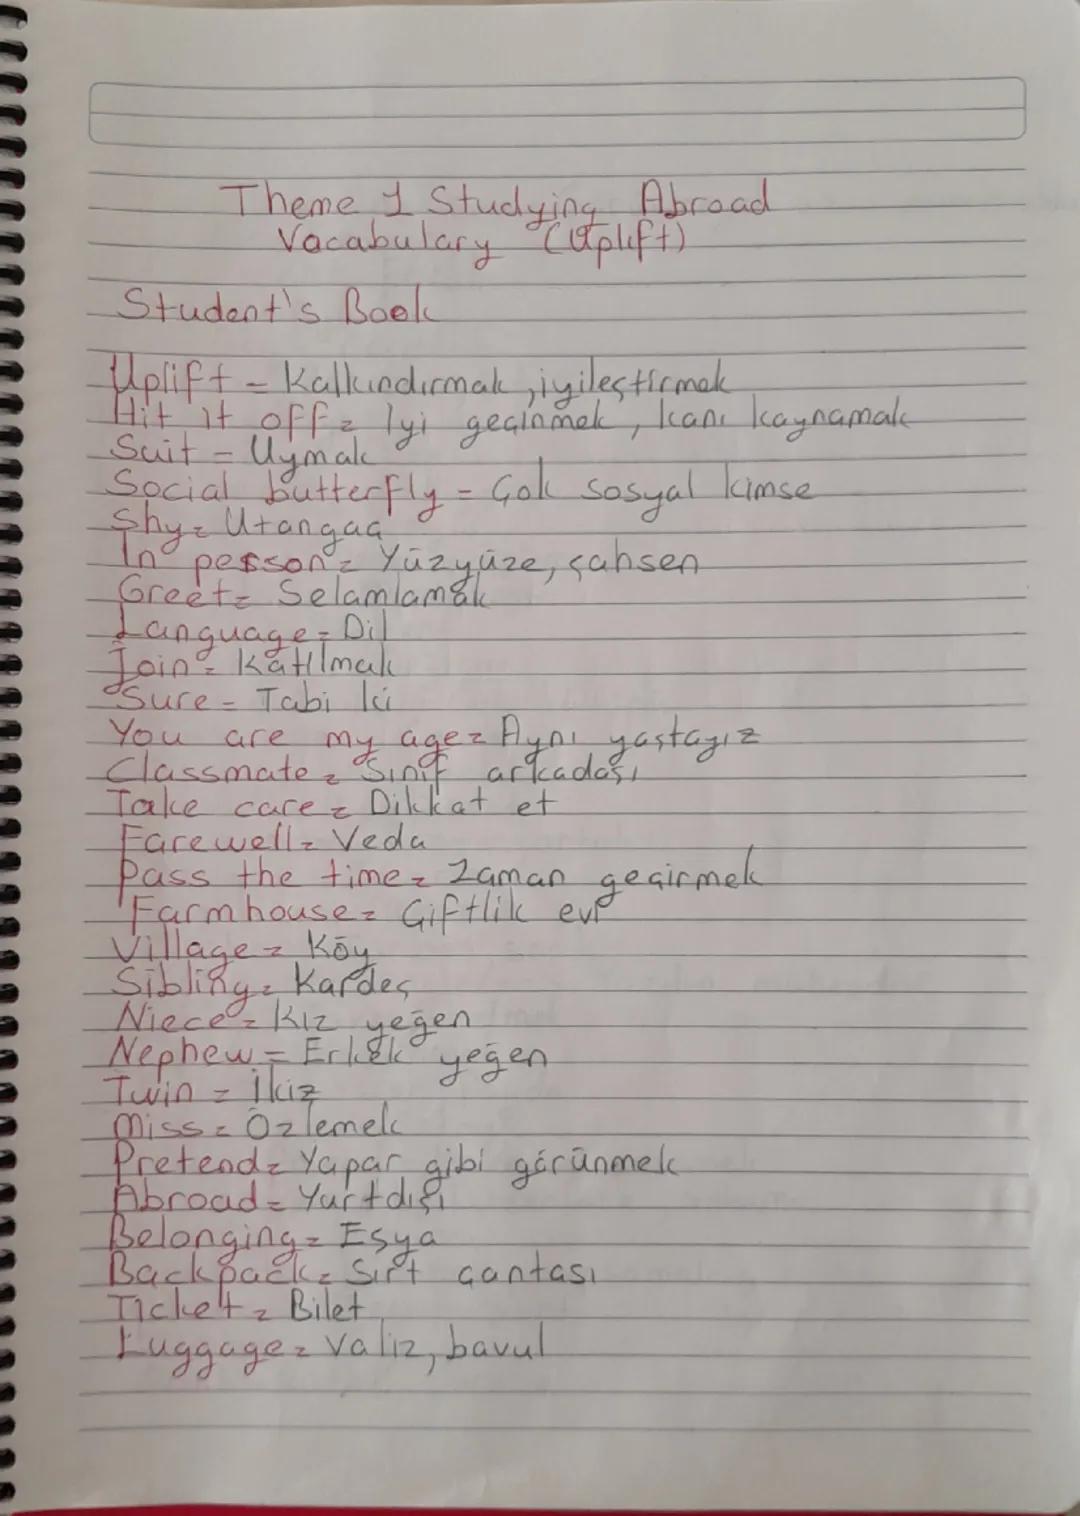 Theme 1 Studying Abroad
Vocabulary (Uplift)
Student's Book
Uplift = Kalkındırmak, iyileştirmek
Hit it off = İyi geçinmek, kanı kaynamak
Suit = Uymak
Social butterfly = Çok sosyal kimse
Shy = Utangaç
In person = Yüzyüze, şahsen
Greet = Selamlamak
Language = Dil
Join = Katılmak
Sure = Tabi ki
You are my age = Aynı yaştayız
Classmate = Sınıf arkadaşı
Take care = Dikkat et
Farewell = Veda
Pass the time = Zaman geçirmek
Farmhouse = Çiftlik evi
Village = Köy
Sibling = Kardeş
Niece = Kız yeğen
Nephew = Erkek yeğen
Twin = İkiz
Miss = Özlemek
Pretend = Yapar gibi görünmek
Abroad = Yurtdışı
Belonging = Eşya
Backpack = Sırt çantası
Ticket = Bilet
Luggage = Valiz, bavul